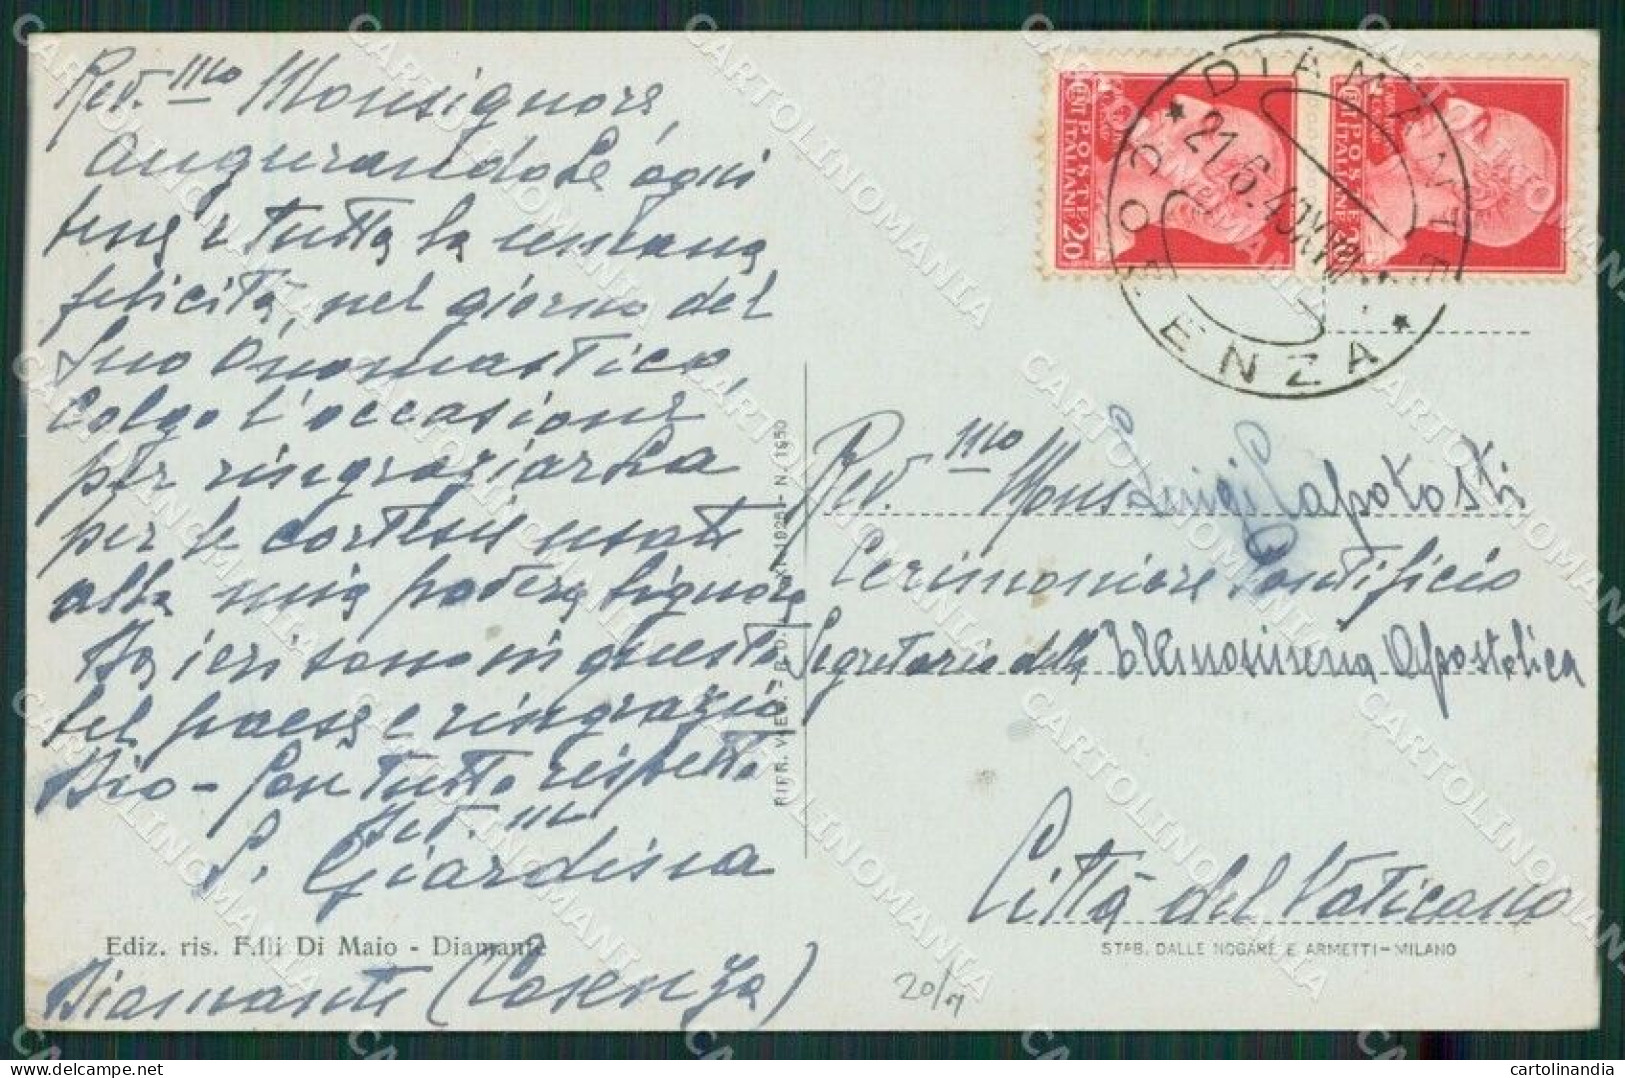 Rev.mo Monsignore,
augurandole ogni
bene e tutta la umana
felicità, nel giorno del
Suo Onomastico,
colgo l'occasione
per ringraziarla
per le cortesie usate
alla mia povera signora
Da ieri sono in questo
bel paese e ringrazio
Dio - Con tutto rispetto
Dev.mo
S. Giardina
Ediz. ris. F.lli Di Maio - Diamante
Diamante (Cosenza)
RIPR. VIET. - 
N. 1950
POSTE ITALIANE
CENT 20
POSTE ITALIANE
DIAMANTE
21.6.40 XVIII
COSENZA
Rev.mo Mons Luigi Capotosti
Cerimoniere Pontificio
Segretario della Elemosineria Apostolica
Città del Vaticano
STAB. DALLE NOGARE E ARMETTI - MILANO
20/M
CARTOLINOMANIA
cartolinandia